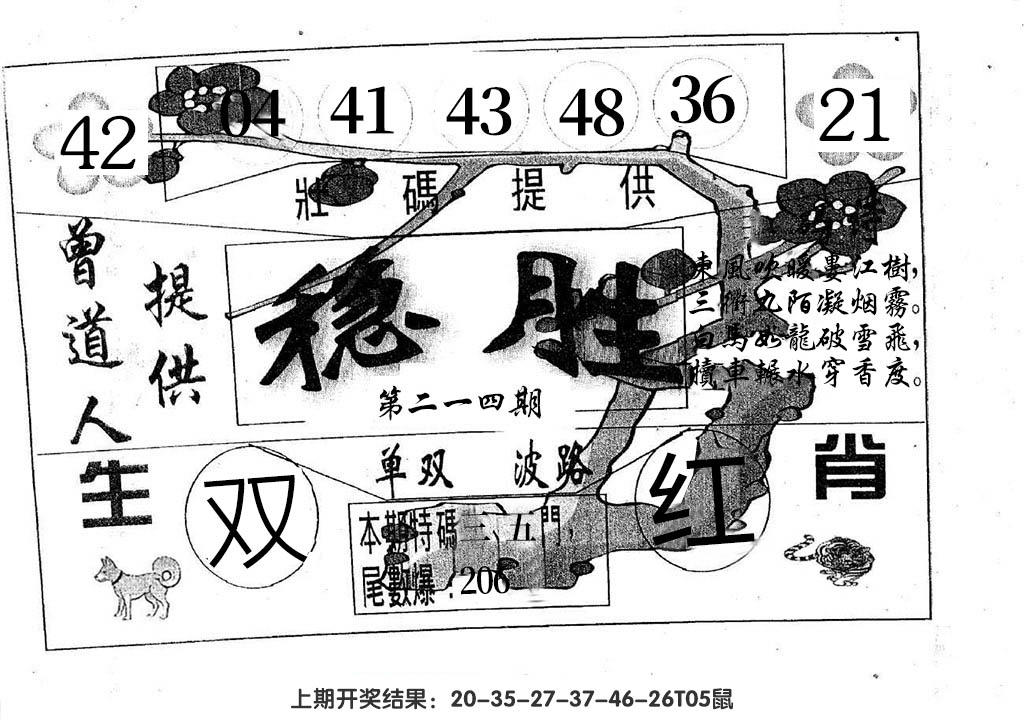 42 04 41 43 48 36 21
壯碼提供
曾道人
提供
稳胜
第二一四期
東風吹暖婁江樹,
三衢九陌凝烟霧。
白馬如龍破雪飛,
犢車輾水穿香度。
单双 波路
生
双
红
肖
本期特碼三、五門,
尾數爆:206
上期开奖结果：20-35-27-37-46-26T05鼠